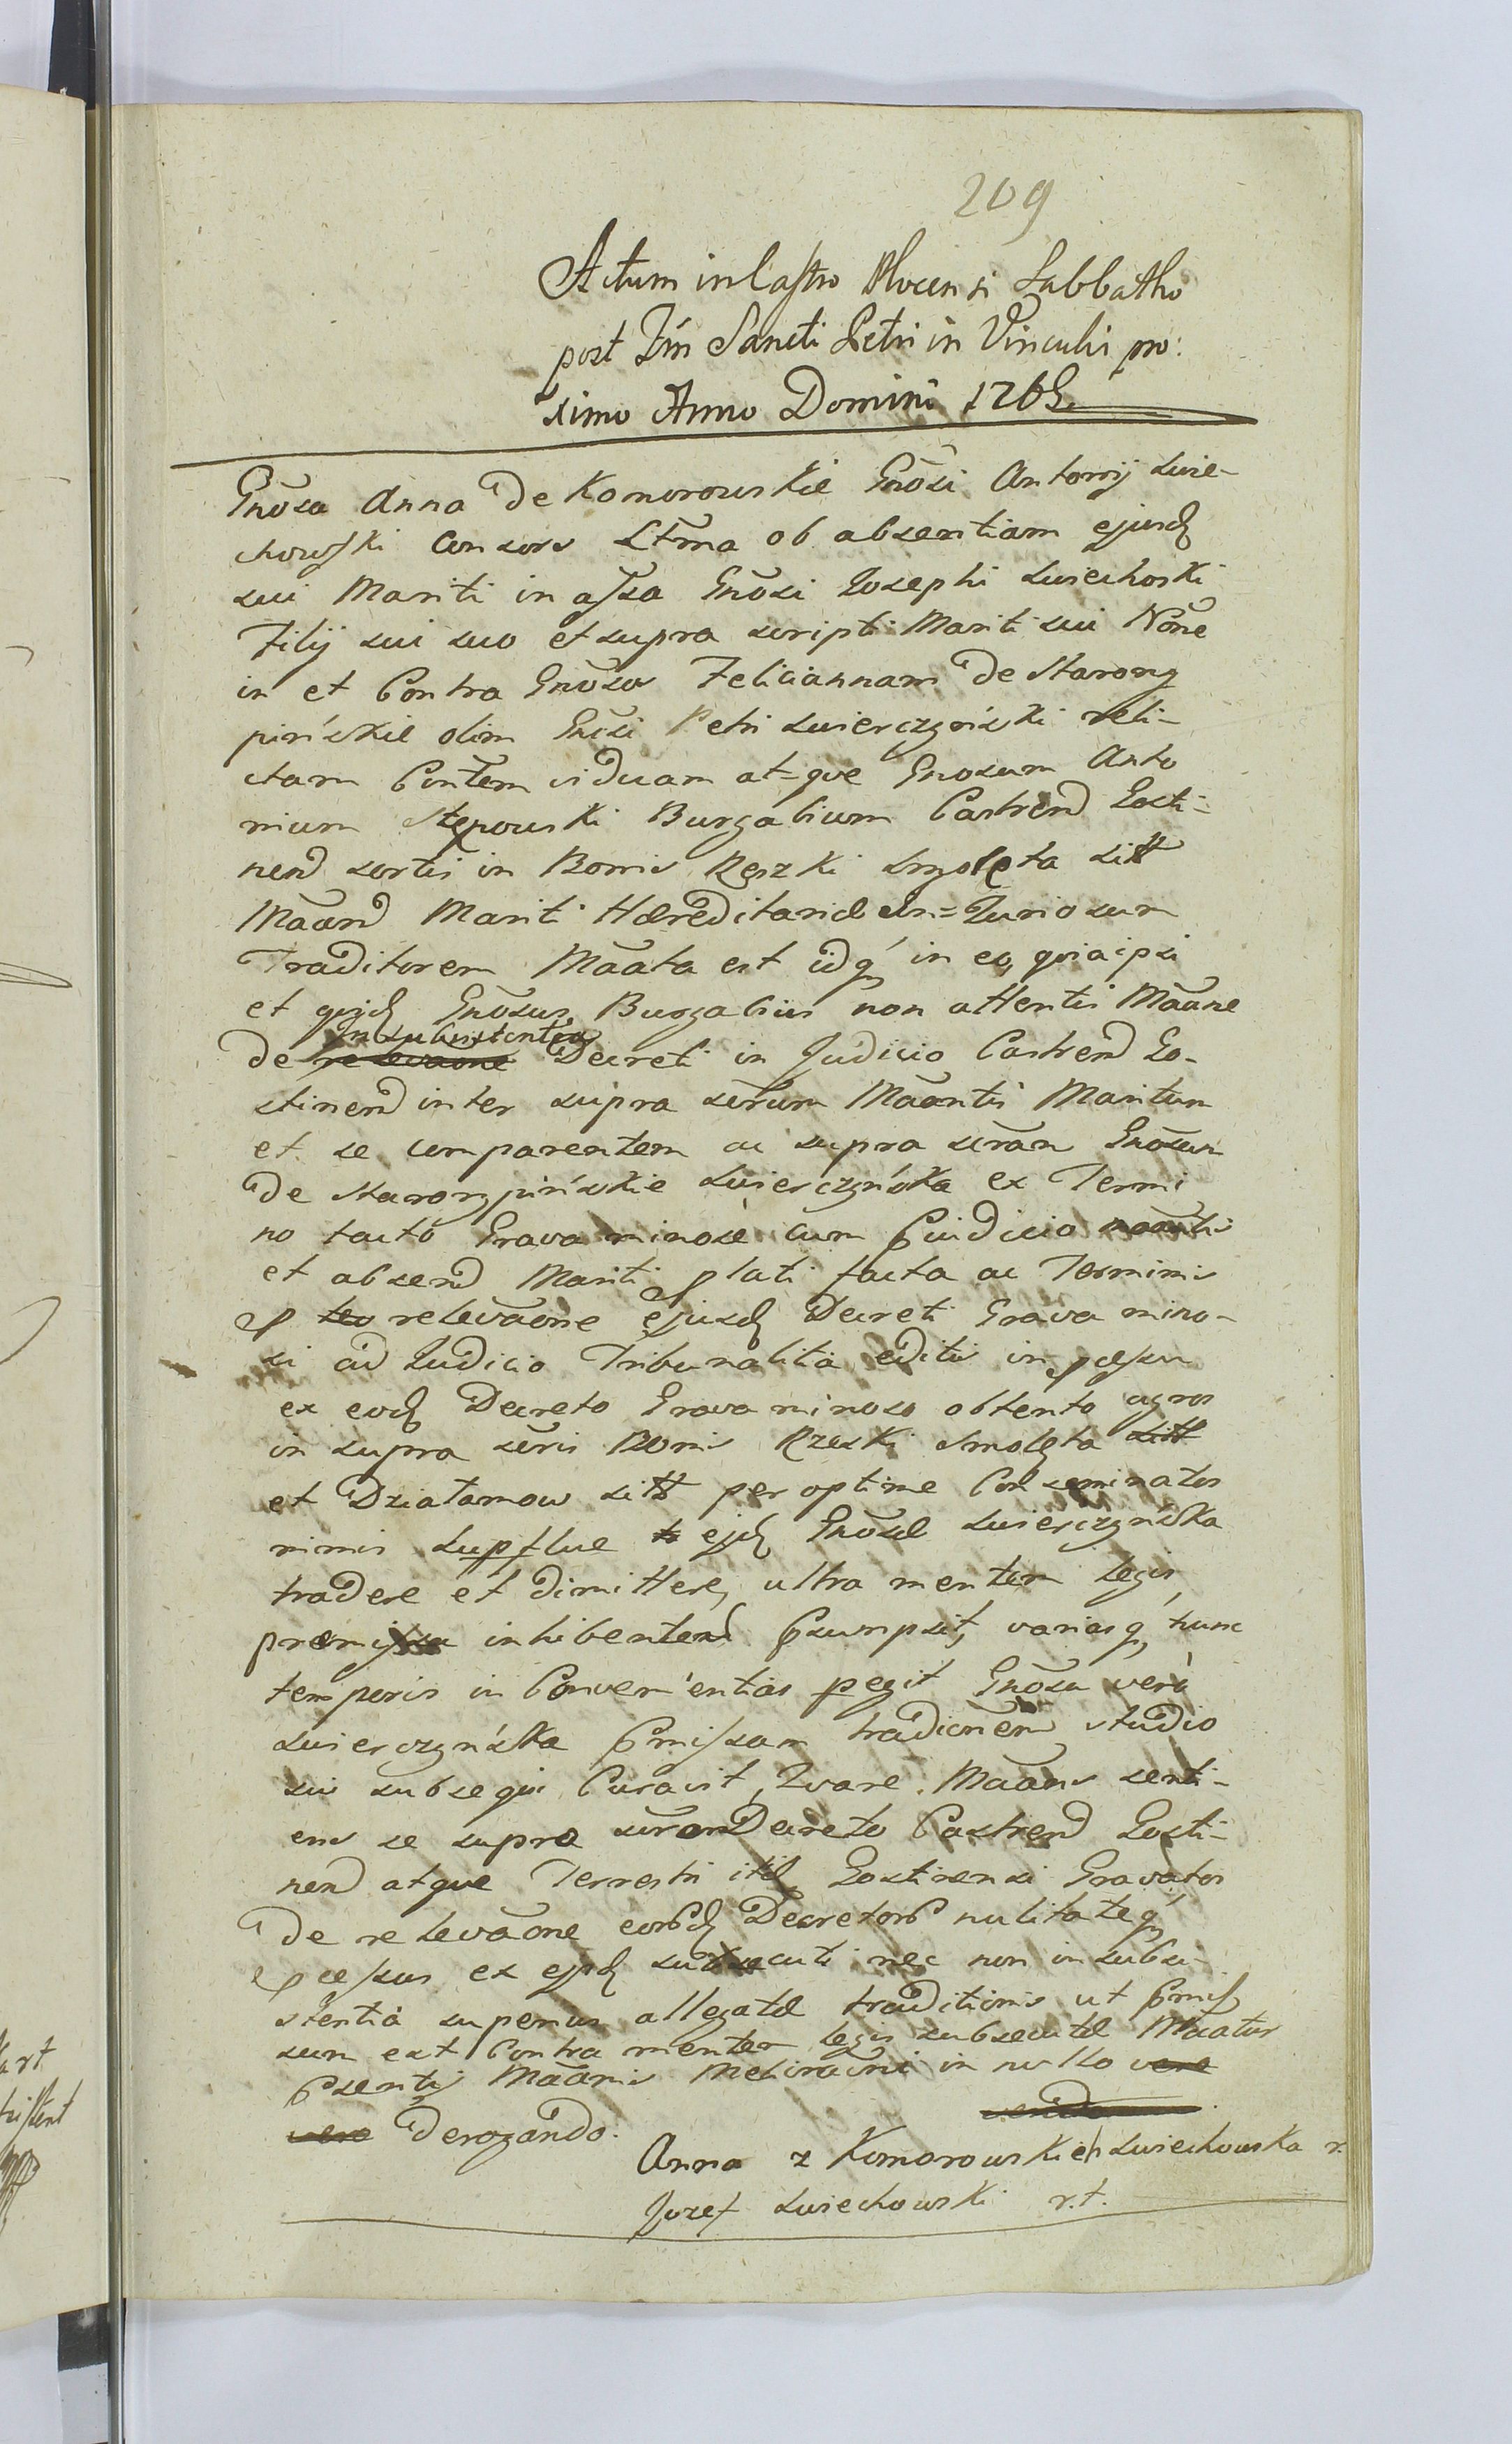 209
Actum in Castro Plocensi Sabbatho
post Fm Sancti Petri in Vinculis pro:
ximo Anno Domini 1765.
Gnosa Anna de Komorowskie Gnosi Antonij Swie-
chowski Consors Ltma ob absentiam ejusd
sui Mariti in assa Gnosi Josephi Swiechoski
Filij sui suo et supra scripti Mariti sui None
in et Contra Gnosos Feliciannam de Starorz
pińskie olim Gnosi Petri Swierczyński reli-
ctam Contem viduam at-que Gnosum Anto
nium Stępowski Burgabium Castrend Gosti-
nend sortis in Bonis Rzeszki Smolęta sitt
Maand Mariti Hæreditariæ In=Juriosum
Traditorem Maata est idq in eo, quia ipsi
et quid Gnosus Burgabius non attentis Maane
In subsistentia
de relevaone Decreti in Judicio Castrend Go-
stinend inter supra scrum Maantis Maritum
et se comparentem ac supra scram Gnosam
de Starorzpińskie Swierczyńska ex Termi
no tacto Gravaminose cum Pjudicio
et absend Mariti plati facta ac Terminis
p relevaone ejusd Decreti Gravamino-
si ad Judicio Tribunalitia editis in pcessu
ex eod Decreto Gravaminoso obtento agros
in supra scris Bonis Rzeski Smolęta sitt
et Dziatamow sitt per optime Conseminatos
nimis supflue ejd Gnosæ Swierczyńska
tradere et dimittere, ultra mentem legis
premissa inhibentend Psumpsit, variasq, tunc
temporis in Convenientias pegit Gnosa vero
Swierczyńska Pmissam tradicnem studio
sui subsequi Curavit, Quare Maans senti-
ens se supra Decreto Castrend Gosti-
nend atque Terrestri itd Gostinensi Gravatos
De relevaone eord Decretor nulitateq
pcessus ex ejsd subsecuti nec non in subsi-
stentia superius allegatæ traditionis ut Pmis
sum est Contra mentem legis subsecutæ Maatur
Psentij Maanis Melioracni in nullo vere
vero Derogando.
Anna z Komorowskich Swiechowska r.
Jozef Swiechowski r.t.